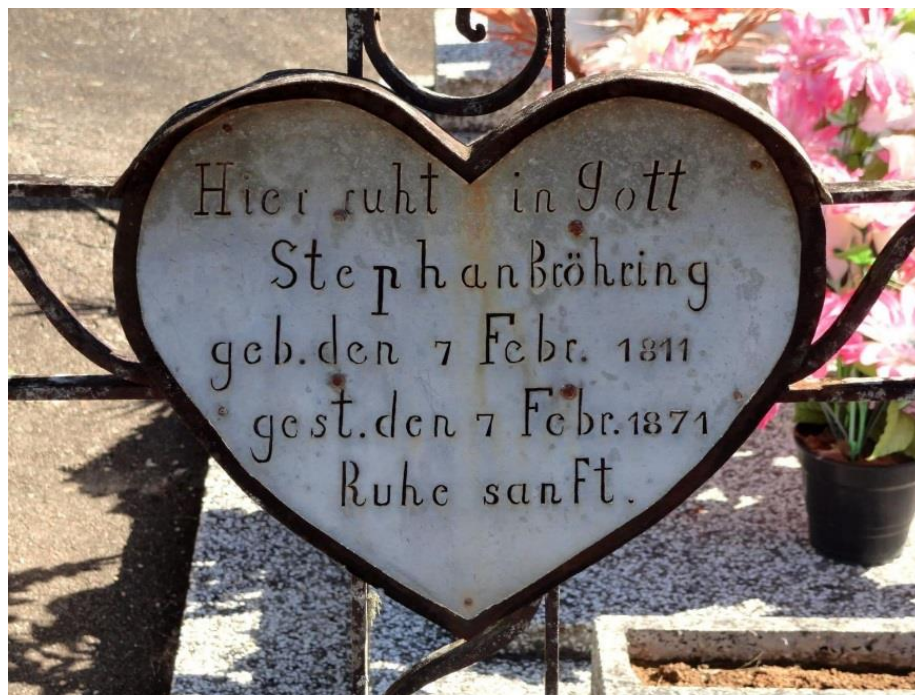 Hier ruht in Gott
Stephan Bröhring
geb. den 7 Febr. 1811
gest. den 7 Febr. 1871
Ruhe sanft.